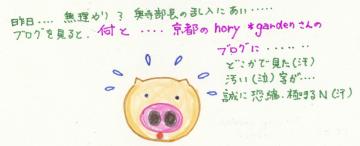 昨日.... 無理やり3 奥寺部長の申し入にあい.....
ブログを見ると、何と .... 京都の hory *gardenさんの
ブログに......
どこかで見た(汗)
汚い(泣)字が....
誠に恐縮.極まるN(汗)